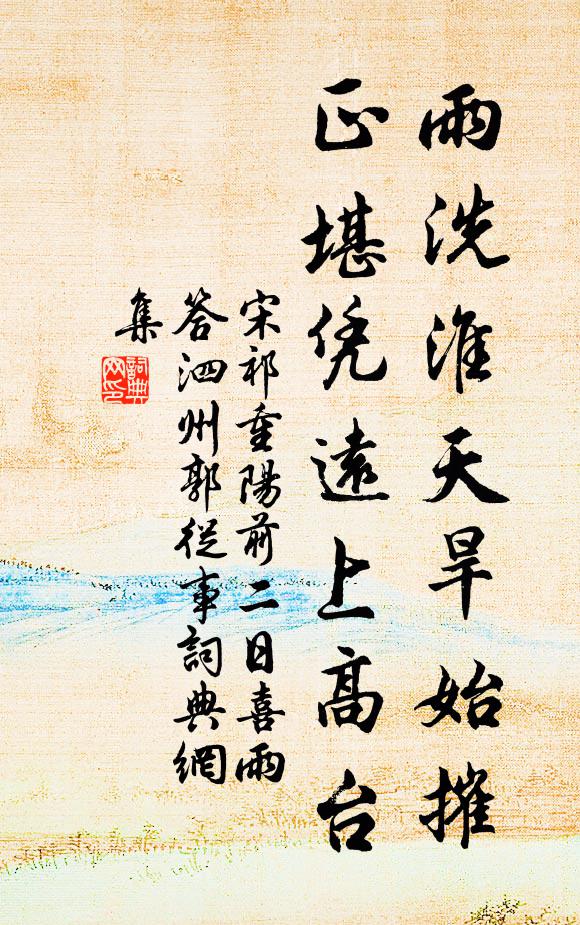 雨洗淮天旱始摧
正堪凭遠上高台
宋祁重陽前二日喜雨
答泗州郭從事詞典網
集
詞典網印